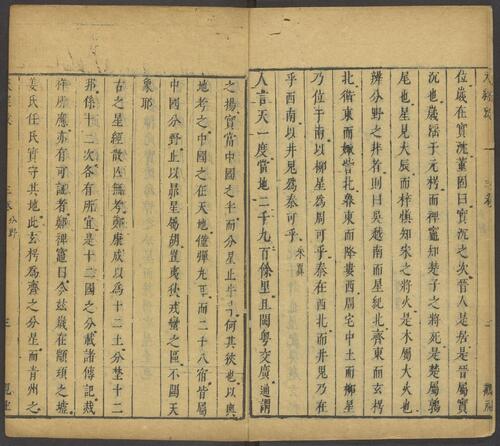 位歲在實沈董因曰實沉之次晉人是居是晉屬實
沉也歲淫于元枵而裨竈知楚子之將死是楚屬鶉
尾也星見大辰而梓慎知宋之將火是木屬大火也
辨分野之非者則曰吳越南而星紀北齊東而玄枵
北衛東而娵訾北魯東而降婁西周宅中土而柳星
乃位于南以柳星爲周可乎秦在西北而井鬼乃在
乎西南以井鬼爲秦可乎
人言天一度當地二千九百餘里且閩粵交廣通謂
之揚實當中國之半而分星止斗牛何其狹也以輿
地考之中國之在天地僅彈丸耳而二十八宿皆屬
中國分野止以昴星錫胡豈夷狄戎蠻之區不關天
象耶
古之星經散佚無考鄭康成以爲十二土分埜十二
邦係十二次各有所宜是十二國之分載諸傳記災
祥所應亦有可證者鄭裨竈曰今玆歲在顓頊之墟
姜氏任氏實守其地此玄枵爲齊之分星而青州之
分野